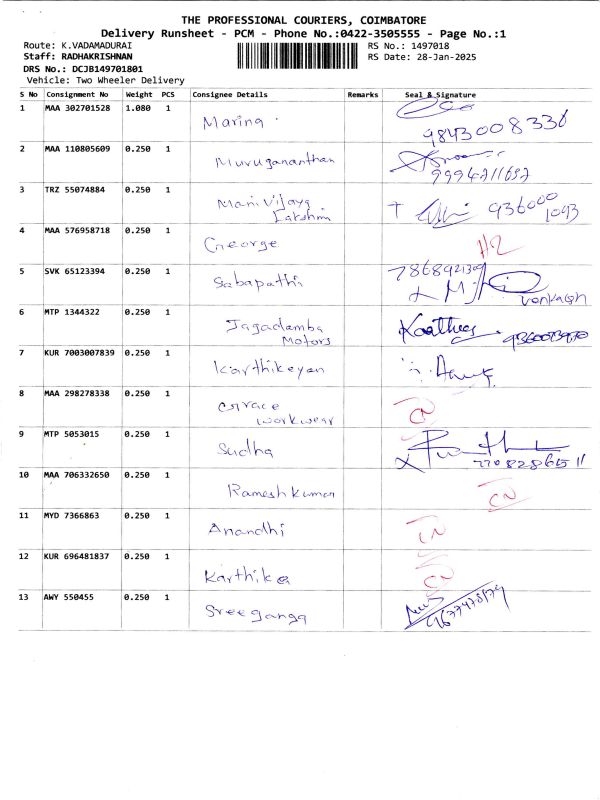 THE PROFESSIONAL COURIERS, COIMBATORE
Delivery Runsheet - PCM - Phone No.:0422-3505555 - Page No.:1
Route: K.VADAMADURAI
RS No.: 1497018
Staff: RADHAKRISHNAN
RS Date: 28-Jan-2025
DRS No.: DCJB149701801
Vehicle: Two Wheeler Delivery
S No Consignment No Weight PCS Consignee Details Remarks Seal & Signature
1 MAA 302701528 1.080 1
Marina
9843008336
2 MAA 110805609 0.250 1
Murugananthan
9994711697
3 TRZ 55074884 0.250 1
Mani Vijaya
Lakshmi
936000
1093
4 MAA 576958718 0.250 1
George
H2
5 SVK 65123394 0.250 1
Sabapathi
7868921309
Venkatesh
6 MTP 1344322 0.250 1
Jagadamba
Motors
Kaarthick
7 KUR 7003007839 0.250 1
Karthikeyan
8 MAA 298278338 0.250 1
Grace
workwear
CN
9 MTP 5053015 0.250 1
Sudha
10 MAA 706332650 0.250 1
Rameshkumar
CN
11 MYD 7366863 0.250 1
Anandhi
CN
12 KUR 696481837 0.250 1
Karthika
CN
13 AWY 550455 0.250 1
Sreeganga
9677478179